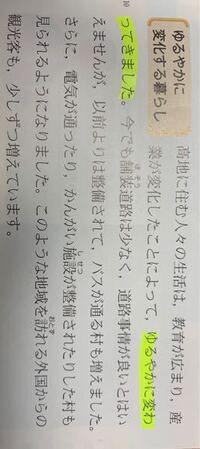 ゆるやかに
変化する暮らし
高地に住む人々の生活は、教育が広まり、産
業が変化したことによって、ゆるやかに変わ
10
ってきました。今でも舗装道路は少なく、道路事情が良いとはい
えませんが、以前よりは整備されて、バスが通る村も増えました。
さらに、電気が通ったり、かんがい施設が整備されたりした村も
見られるようになりました。このような地域を訪れる外国からの
観光客も、少しずつ増えています。